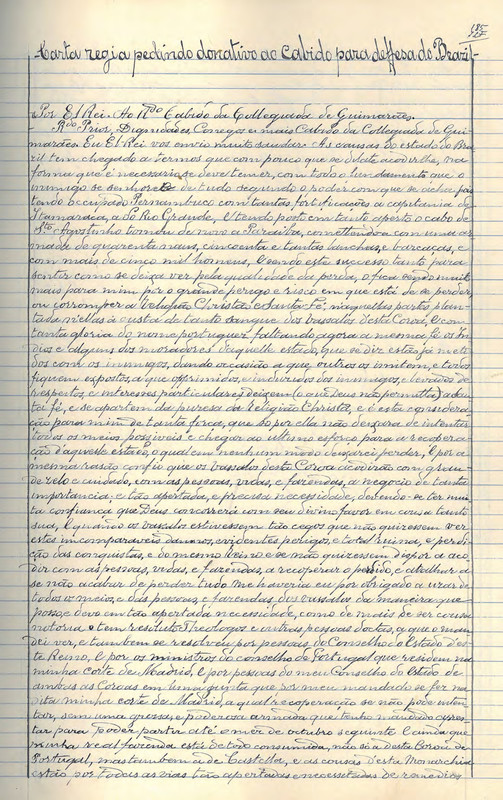 185
Carta regia pedindo donativo ao Cabido para deffesa do Brazil-
Por El Rei. Ao Rdo Cabido da Collegiada de Guimarães.
Rdo Prior, Dignidades, Conegos e mais Cabido da Collegiada de Gui-
marães. Eu El Rei vos envio muito saudar. As cousas do estado do Bra-
zil tem chegado a termos que com pouco que se dilate acodirlhe, na
forma que é necessario, se deve temer, com todo o fundamento que o
inimigo se senhoree de tudo segundo o poder com que se acha, pois
tendo occupado Pernambuco com tantas fortificações a capitania de
Itamaraca, a do Rio Grande, E tendo posto em tanto aperto o cabo de
Sto Agostinho tomou de novo a Paraiba, comettendo-a com uma ar-
mada de quarenta naus, cincoenta e tantas lanchas e barcaças, e
com mais de cinco mil homens, E sendo este successo tanto para
sentir como se deixa ver pela qualidade da perda, o fica sendo muito
mais para mim por o grande perigo e risco em que está de se perder,
ou corromper a Religião Christã e Santa Fé, n'aquellas partes plan-
tada n'ellas á custa de tanto sangue dos vassalos d'esta Coroa, E com
tanta gloria do nome portuguez, faltando agora a mesma fé os In-
dios e alguns dos moradores d'aquelle estado, que se diz estão já meti-
dos com os inimigos, dando occasião a que outros os imitem, e todos
fiquem expostos, a que opprimidos, e induzidos dos inimigos, e levados de
respeitos, e interesses particulares deixem (o que Deus não permitta) a dou-
ta fé, e se apartem da pureza da Religião Christã, e é esta considera-
ção para mim de tanta força, que só por ella não deixara de intentar
todos os meios possiveis e chegar ao ultimo esforço para a recopera-
ção d'aquelle estado, o qual em nenhum modo deixarei perder, E por a
mesma rasão confio que os vassalos desta Coroa acodirão com gran-
de zelo e cuidado, com as pessoas, vidas, e fazendas, a negocio de tanta
importancia, e tão apertada, e precisa necessidade, devendo-se ter mui-
ta confiança que Deus concorrera com seu divino favor em cousa tanto
sua, E quando os vassalos estivessem tão cegos que não quizessem ver
estes incomparaveis damnos, evidentes perigos, e total ruina, e perdi-
ção das conquistas, e do mesmo Reino e se não quizessem dispor a aco-
dir com as pessoas, vidas, e fazendas, a recoperar o perdido, e atalhar a
se não acabar de perder tudo me haveria eu por obrigado a uzar de
todos os meios, e das pessoas, e fazendas dos vassalos da maneira que
posso e devo em tão apertada necessidade, como de mais de ser cousa
notoria o tem resoluto Theologos e outras pessoas doctas, a que o man-
dei ver, e tambem se resolveu por pessoas do Conselho do Estado d'es-
te Reino, E por os ministros do conselho de Portugal que residem na
minha Corte de Madrid, E por pessoas do meu Conselho do Estado de
ambas as Coroas em uma junta que por meu mandado se fez na
dita minha corte de Madrid, a qual recoperação se não pode inten-
tar, sem uma grossa, e poderosa armada que tenho mandado apres-
tar para poder partir até o mez de outubro seguinte E ainda que
minha real fazenda está de todo consumida, não só a desta Coroa de
Portugal, mas tambem a de Castella, e as cousas d'esta Monarchia
estão por todas as vias tão apertadas e necessitadas de remedios